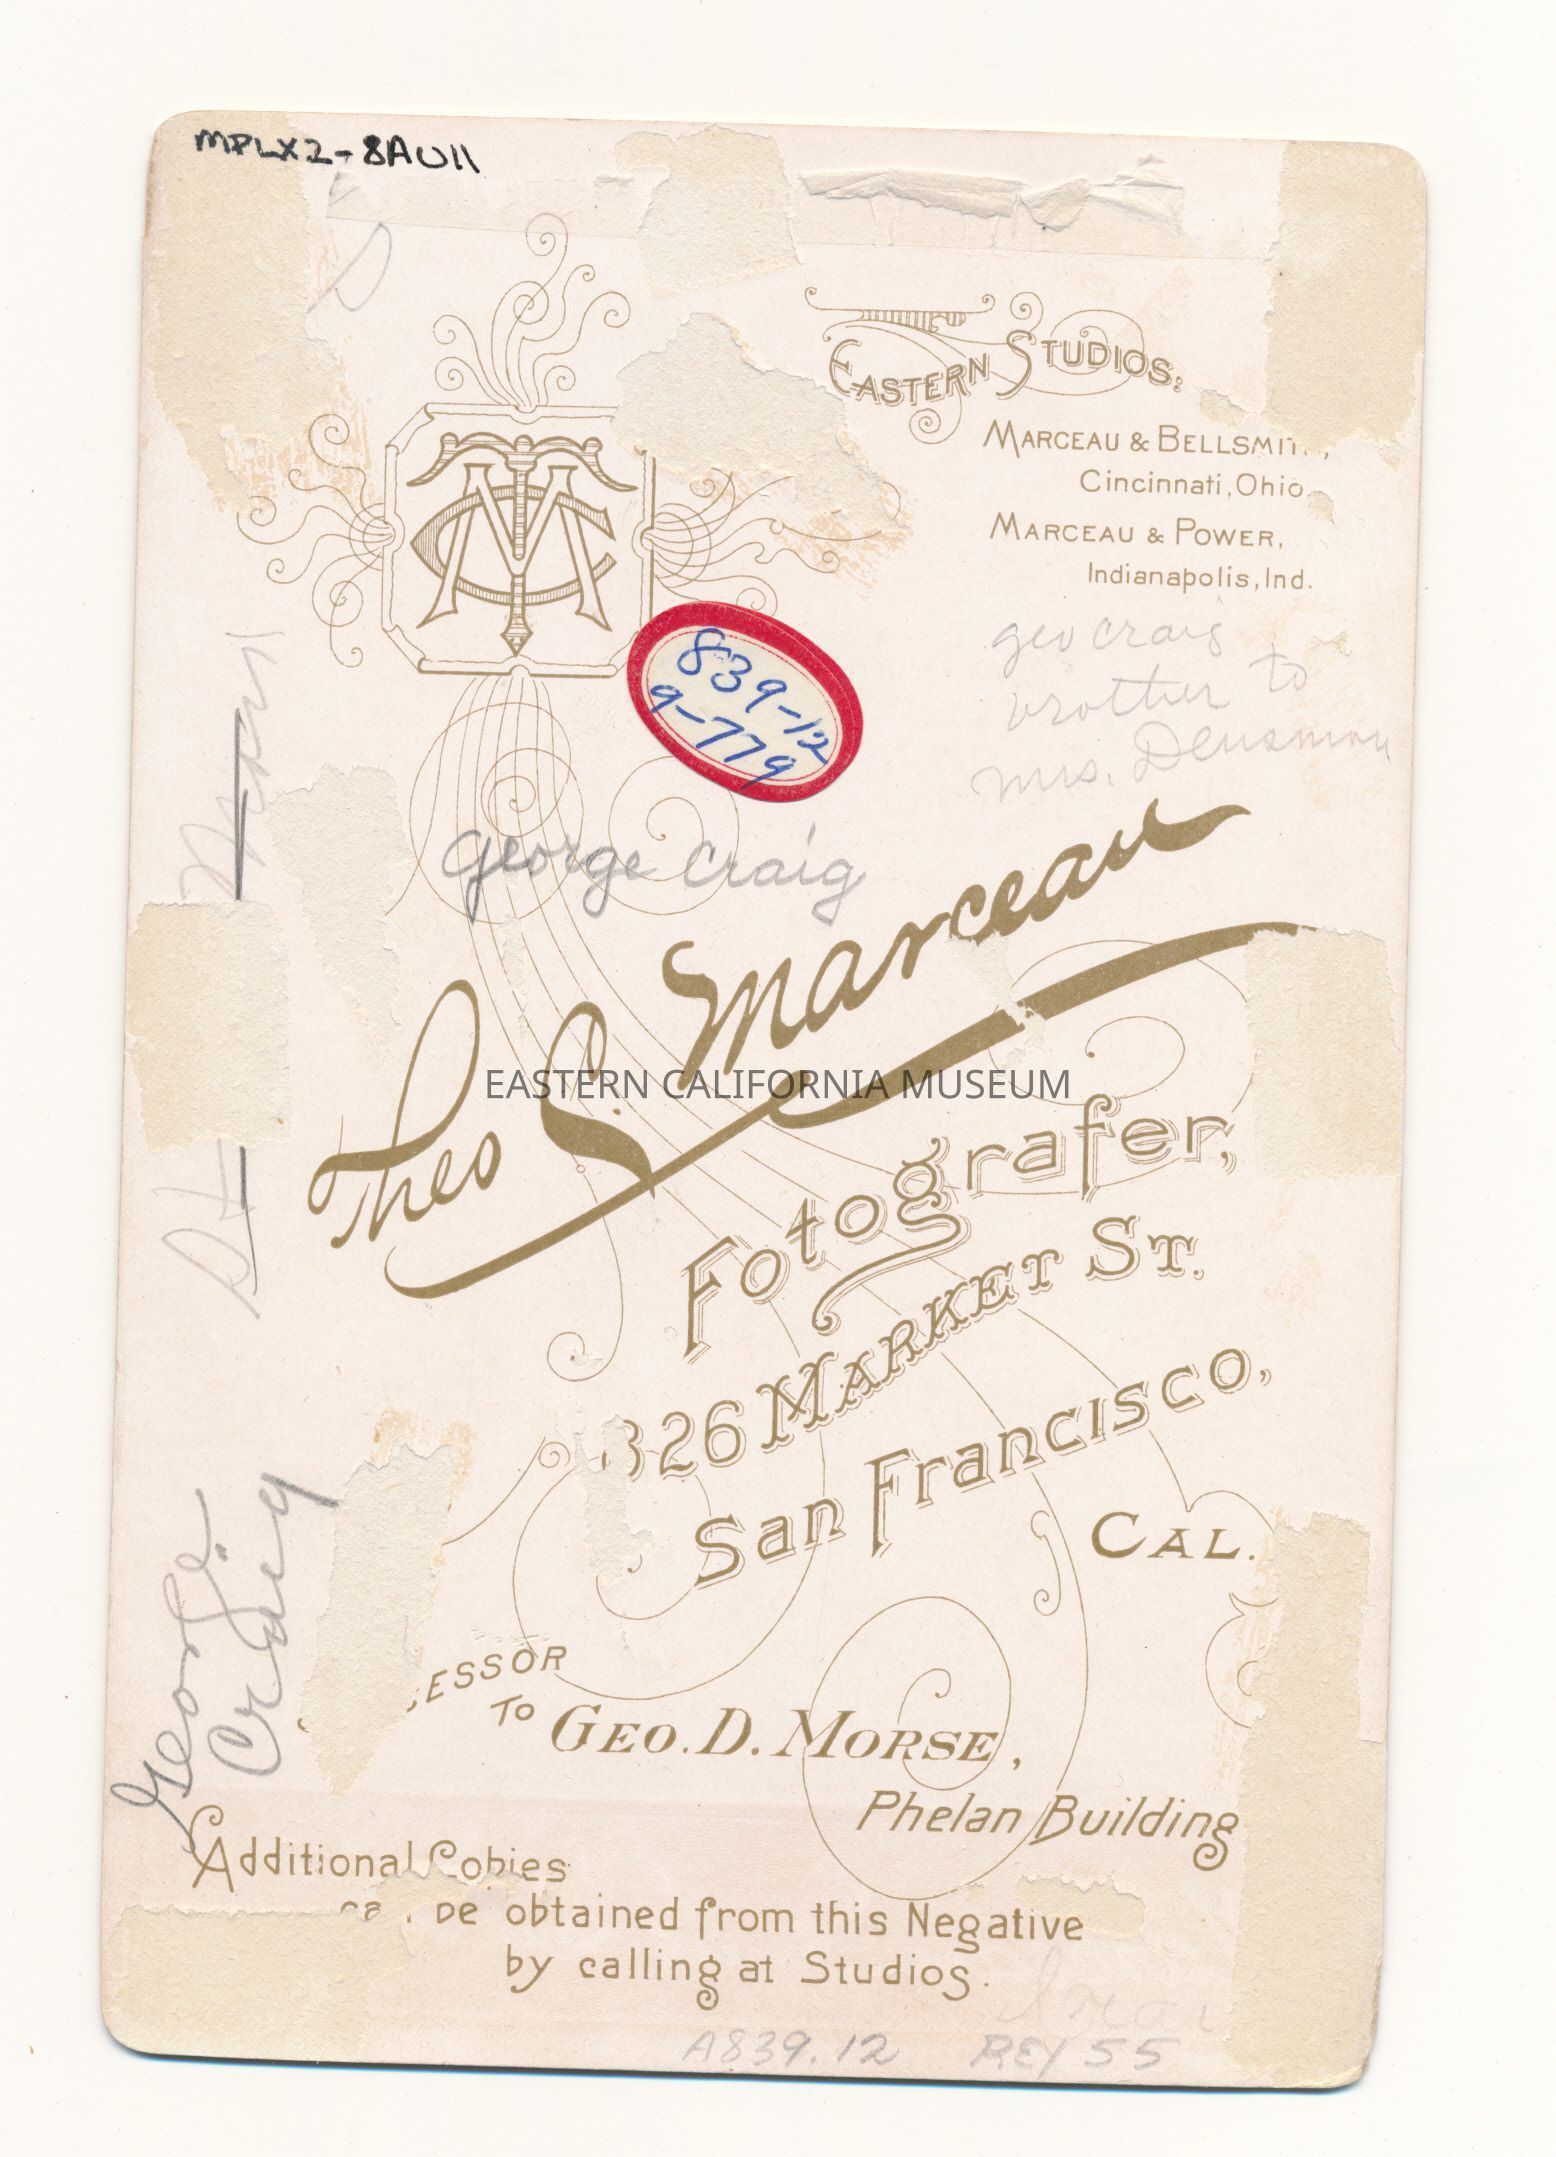 MPLX2-8AU11
EASTERN STUDIOS:
MARCEAU & BELLSMIT
Cincinnati, Ohio.
MARCEAU & POWER,
Indianapolis, Ind.
geo craig
brother to
mrs. Densmore
839-12
9-779
George Craig
Theo C. Marceau
EASTERN CALIFORNIA MUSEUM
Fotografer,
826 MARKET ST.
San Francisco,
CAL.
George
Craig
ESSOR
TO GEO. D. MORSE,
Phelan Building
Additional Copies
be obtained from this Negative
by calling at Studios.
A839.12 REY 55